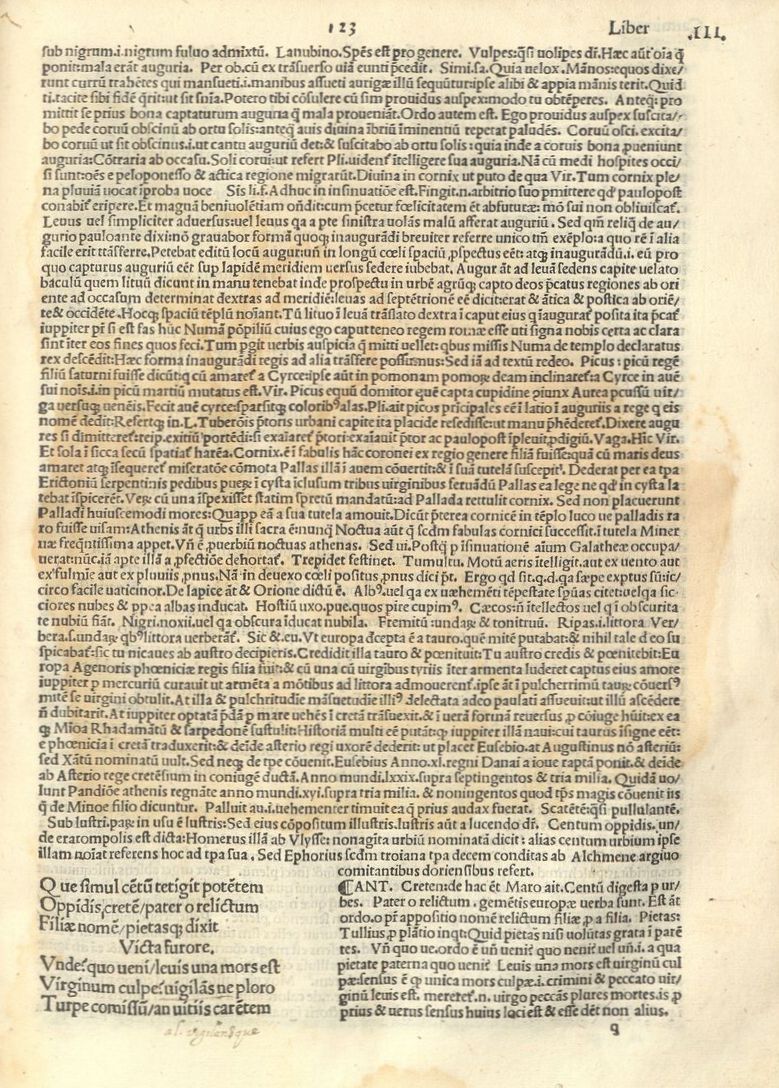 123 Liber .III.
sub nigrum.i.nigrum fuluo admixtũ. Lanubino.Spẽs est pro genere. Vulpes:q̃si uolipes dr̃.Hæc aut̃ oĩa q̃
ponit:mala erãt auguria. Per ob.cũ ex trãsuerso uiã eunti p̃cedit. Simi.sa.Quia uelox. Mãnos:equos dixe/
runt currũ trahẽtes qui mansueti.i.manibus assueti aurigæ illũ sequũtur:ipse alibi & appia mãnis terit.Quid
ti.tacite sibi fidẽ q̃rit:ut sit sñia.Potero tibi cõsulere cũ sim prouidus auspex:modo tu obtẽperes. Anteq̃:pro
mittit se prius bona captaturum auguria q̃ mala proueniãt.Ordo autem est. Ego prouidus auspex suscita/
bo pede coruũ obscinũ ab ortu solis:anteq̃ auis diuina ĩbriũ ĩminentiũ repetat paludẽs. Coruũ osci.excita/
bo coruũ ut sit obscinus.i.ut cantu auguriũ det:& suscitabo ab ortu solis:quia inde a coruis bona ꝓueniunt
auguria:Cõtraria ab occasu.Soli corui:ut refert Pli.uident̃ ĩtelligere sua auguria.Nã cũ medi hospites occi/
si sunt:oẽs e peloponesso & actica regione migrarũt.Diuina in cornix ut puto de qua Vir.Tum cornix ple/
na pluuiã uocat ĩproba uoce Sis li.f.Adhuc in insinuatiõe est.Fingit.n.arbitrio suo pmittere qđ paulopost
conabit̃ eripere.Et magnã beniuolẽtiam oñdit:cum p̃cetur fœlicitatẽm et abfuturæ: mõ sui non obliuiscat̃.
Leuus uel simpliciter aduersus:uel leuus qa a pte sinistra uolãs malũ afferat auguriũ. Sed qm̃ reliq̃ de au/
gurio pauloante dixi:nõ grauabor formã quoq; inaugurãdi breuiter referre unico tm̃ exẽplo:a quo rẽ ĩ alia
facile erit trãsferre.Petebat editũ locũ augur:uñ in longũ cœli spaciũ ꝓspectus eẽt:atq; inaugurãdũ.i. eũ pro
quo capturus auguriũ eẽt sup lapidẽ meridiem uersus sedere iubebat. Augur ãt ad leuã sedens capite uelato
baculũ quem lituũ dicunt in manu tenebat inde prospectu in urbẽ agrũq; capto deos p̃catus regiones ab ori
ente ad occasum determinat dextras ad meridiẽ:leuas ad septẽtrionẽ eẽ dicit:erat & ãtica & postica ab oriẽ/
te & occidẽte.Hocq; spaciũ tẽplũ noĩant.Tũ lituo ĩ leuã trãslato dextra ĩ caput eius q ĩaugurat̃ posita ita p̃cat̃
iuppiter pr̃ si est fas hũc Numã põpiliũ cuius ego caput teneo regem romæ esse uti signa nobis certa ac clara
sint ĩter eos fines quos feci.Tum pgit uerbis auspicia q̃ mitti uellet:qbus missis Numa de templo declaratus
rex descẽdit:Hæc forma inaugurãdi regis ad alia trãsferre possumus:Sed iã ad textũ redeo. Picus: picũ regẽ
filiũ saturni fuisse dicũt:q cũ amaret̃ a Cyrce:ipse aũt in pomonam pomoꝝ deam inclinaret:a Cyrce in auẽ
sui noĩs.i.in picũ martiũ mutatus est.Vir. Picus equũ domitor quẽ capta cupidine ꝯiunx Aurea pcussũ uir/
ga uersuq; uenẽis.Fecit auẽ cyrce:sparsitq; coloribꝰ alas.Pli.ait picos pricipales eẽ ĩ latio ĩ auguriis a rege q eis
nomẽ dedit:Refertq; in.L.Tuberõis p̃toris urbani capite ita placide resedisse:ut manu p̃hẽderet̃.Dixere augu
res si dimitteret̃:reip.exitiũ portẽdi:si exaĩaret̃ p̃tori:exaĩauit p̃tor ac paulopost ĩpleuit ꝓdigiũ. Vaga. Hĩc Vir.
Et sola ĩ sicca secũ spatiat̃ harẽa.Cornix.ẽ ĩ fabulis hãc coronei ex regio genere filiã fuisse:quã cũ maris deus
amaret atq; ĩsequeret̃ miseratõe cõmota Pallas illã ĩ auem cõuertit:& ĩ suã tutelã suscepit. Dederat per ea tpa
Erictoniũ serpentinis pedibus pueꝝ ĩ cysta ĩclusum tribus uirginibus seruãdũ Pallas ea lege ne qđ in cysta la
tebat ĩspicerẽt.Veꝝ cũ una ĩspexisset statim spretũ mandatũ:ad Pallada rettulit cornix. Sed non placuerunt
Palladi huiuscemodi mores:Quapp eã a sua tutela amouit.Dicũt p̃terea cornicẽ in tẽplo luco ue palladis ra
ro fuisse uisam:Athenis ãt q̃ urbs illi sacra ẽ:nunq̃ Noctua aũt q̃ scđm fabulas cornici successit.ĩ tutela Miner
uæ freq̃ntissima appet.Vñ ẽ ꝓuerbiũ noctuas athenas. Sed ui.Postq̃ p ĩsinuationẽ aĩum Galatheæ occupa/
uerat:nũc.iã apte illã a ꝓfectiõe dehortat̃. Trepidet festinet. Tumultu. Motũ aeris ĩtelligit.aut ex uento aut
ex fulmĩe aut ex pluuiis ꝓnus.Nã in deuexo cœli positus ꝓnus dici p̃t. Ergo qđ sit.q.d.qa sæpe exptus sũ:ic/
circo facile uaticinor.De lapice ãt & Orione dictũ ẽ. Albꝰ.uel qa ex uæhemẽti tẽpestate spũas citet:uel qa sic/
ciores nubes & ppea albas inducat. Hostiũ uxo.pue.quos pire cupimꝰ. Cæcos:ñ ĩtellectos uel q ĩ obscurita
te nubiũ fiãt. Nigri.noxii.uel qa obscura ĩducat nubila. Fremitũ:undaꝝ & tonitruũ. Ripas.i.littora Ver/
bera.s.undaꝝ qbꝰ littora uerberãt̃. Sic & .eu.Vt europa dcepta ẽ a tauro.quẽ mitẽ putabat:& nihil tale d eo su
spicabat̃:sic tu ne caues ab austro decipieris.Credidit illa tauro & pœnituit:Tu austro credis & pœnitebit:Eu
ropa Agenoris phœniciæ regis filia fuit:& cũ una cũ uirgĩbus tyriis ĩter armenta luderet captus eius amore
iuppiter p mercuriũ curauit ut armẽta a mõtibus ad littora admouerent̃.ipse ãt ĩ pulcherrimũ tauꝝ cõuersꝰ
mitẽ se uirgini obtulit.At illa & pulchritudĩe mãsuetudĩe illiꝰ delectata adeo paulati assueuit:ut illũ ascẽdere
ñ dubitarit.At iuppiter optata p̃da p mare uehẽs ĩ cretã trãsuexit.& ĩ uerã formã reuersus ꝓ cõiuge hũit:ex ea
q; Mĩoa Rhadamãtũ & sarpedonẽ sustulit:Historiã multi eẽ putãt:q iuppiter illã naui:cui taurus ĩsigne eẽt:
e phœnicia ĩ cretã traduxerit:& deĩde asterio regi uxorẽ dederit:ut placet Eusebio.at Augustinus nõ asteriũ:
sed Xãtũ nominatũ uult.Sed neq; de tpe cõuenit.Eusebius Anno.xl.regni Danai a ioue raptã ponit.& deide
ab Asterio rege cretẽsium in coniugẽ ductã.Anno mundi.lxxix.supra septingentos & tria milia. Quidã uo/
lunt Pandiõe athenis regnãte anno mundi.xyi.supra tria milia. & noningentos quod tp̃s magis cõuenit iis
q̃ de Minoe filio dicuntur. Palluit au.i.uehementer timuit ea q̃ prius audax fuerat. Scatẽtẽ:q̃si pullulantẽ.
Sub lustri.paꝝ in usu ẽ lustris:Sed eius cõpositum illustris.lustris aũt a lucendo dr̃. Centum oppidis.un/
de eratompolis est dicta:Homerus illã ab Vlysse: nonagĩta urbiũ nominatã dicit: alias centum urbium ipse
illam noĩat referens hoc ad tpa sua . Sed Ephorius scđm troiana tpa decem conditas ab Alchmene argiuo
comitantibus doriensibus refert.
Que simul cẽtũ tetigit potẽtem
Oppidis cretẽ/pater o relictum
Filiæ nomẽ/pietasq; dixit
Victa furore.
Vnde? quo ueni/leuis una mors est
Virginum culpe? uigilãs ne ploro
Turpe comissũ/an uitiis carẽtem
al. vigilansque
¶CANT. Creten:de hac ẽt Maro ait.Centũ digesta p ur/
bes. Pater o relictũ . gemẽtis europæ uerba sunt. Est ãt
ordo.o pr̃ appositio nomẽ relictum filiæ,ꝓ a filia. Pietas:
Tullius,ꝓ plãtio inqt:Quid pietas nisi uolũtas grata ĩ parẽ
tes. Vñ quo ue.ordo ẽ uñ uenit̃ quo nenit̃ uel uñ.i. a qua
pietate paterna quo uenit̃ Leuis una mors est uirginũ cul
pæ:sensus ẽ q unica mors culpæ.i.crimini & peccato uir/
ginũ leuis est. meretet̃.n. uirgo peccãs plures mortes.is ꝓ
prius & uerus sensus huius loci est & esse dẽt non alius.
q